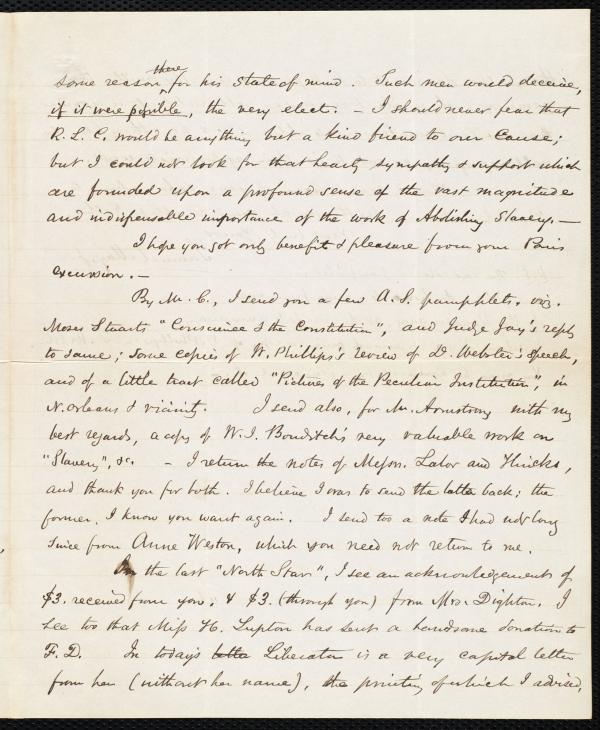 some reason there for his state of mind. Such men would deceive,
if it were possible, the very elect. – I should never fear that
R. L. C. would be anything but a kind friend to our Cause;
but I could not look for that hearty sympathy & support which
are founded upon a profound sense of the vast magnitude
and indispensable importance of the work of Abolishing Slavery. –
I hope you got only benefit & pleasure from your Paris
excursion. –
By Mr. C., I send you a few A. S. pamphlets, viz.
Moses Stuart's "Conscience & the Constitution", and Judge Jay's reply
to same; some copies of W. Phillips's review of D. Webster's speech,
and of a little tract called "Pictures of the Peculiar Institution", in
N. Orleans & vicinity. I send also, for Mr. Armstrong with my
best regards, a copy of W. I. Bowditch's very valuable work on
"Slavery", &c. – I return the notes of Messrs. Lalor and Hincks,
and thank you for both. I believe I was to send the latter back; the
former, I know you want again. I send too a note I had not long
since from Anne Weston, which you need not return to me.
In the last "North Star", I see an acknowledgement of
$3. received from you, & $3. (through you) from Mrs. Dighton. I
see too that Miss H. Lupton has sent a handsome donation to
F. D. In today's Liberator is a very capital letter
from her (without her name), the printing of which I advised,